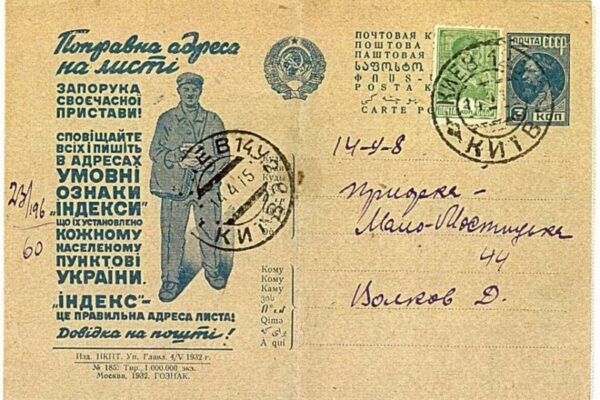 Поправна адреса
на листі
ЗАПОРУКА
СВОЄЧАСНОЇ
ПРИСТАВИ!
СПОВІЩАЙТЕ
ВСІХ І ПИШІТЬ
В АДРЕСАХ
УМОВНІ
ОЗНАКИ
„ІНДЕКСИ"
ЩО ЇХ УСТАНОВЛЕНО
КОЖНОМУ
НАСЕЛЕНОМУ
ПУНКТОВІ
УКРАЇНИ.
„ІНДЕКС"-
ЦЕ ПРАВИЛЬНА АДРЕСА ЛИСТА!
Довідка на пошті!
Изд. НКПТ. Уп. Главл. 4/V 1932 г.
№ 185. Тир. 1 000.000 экз.
Москва, 1932. ГОЗНАК.
60
ПОЧТОВАЯ К
ПОШТОВА
ПАШТОВАЯ
ՓՈՍՏ
POSTA K
CARTE PO
ПОЧТА СССР
КОП
КИЕВ
КИЇВ
14У8
14.4.15
КИЇВ
Куды
Кому
Кому
Каму
Qima
A qui
14-У-8
Приорка-
Мало-Мостицька
44
Волков Д.